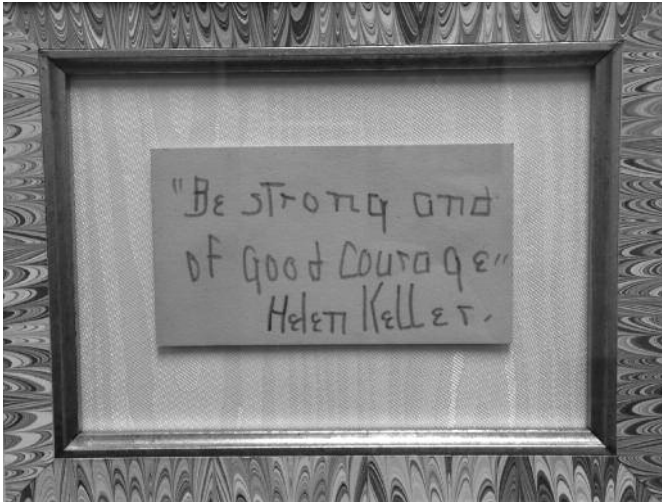 "Be strong and
of good courage"
Helen Keller.